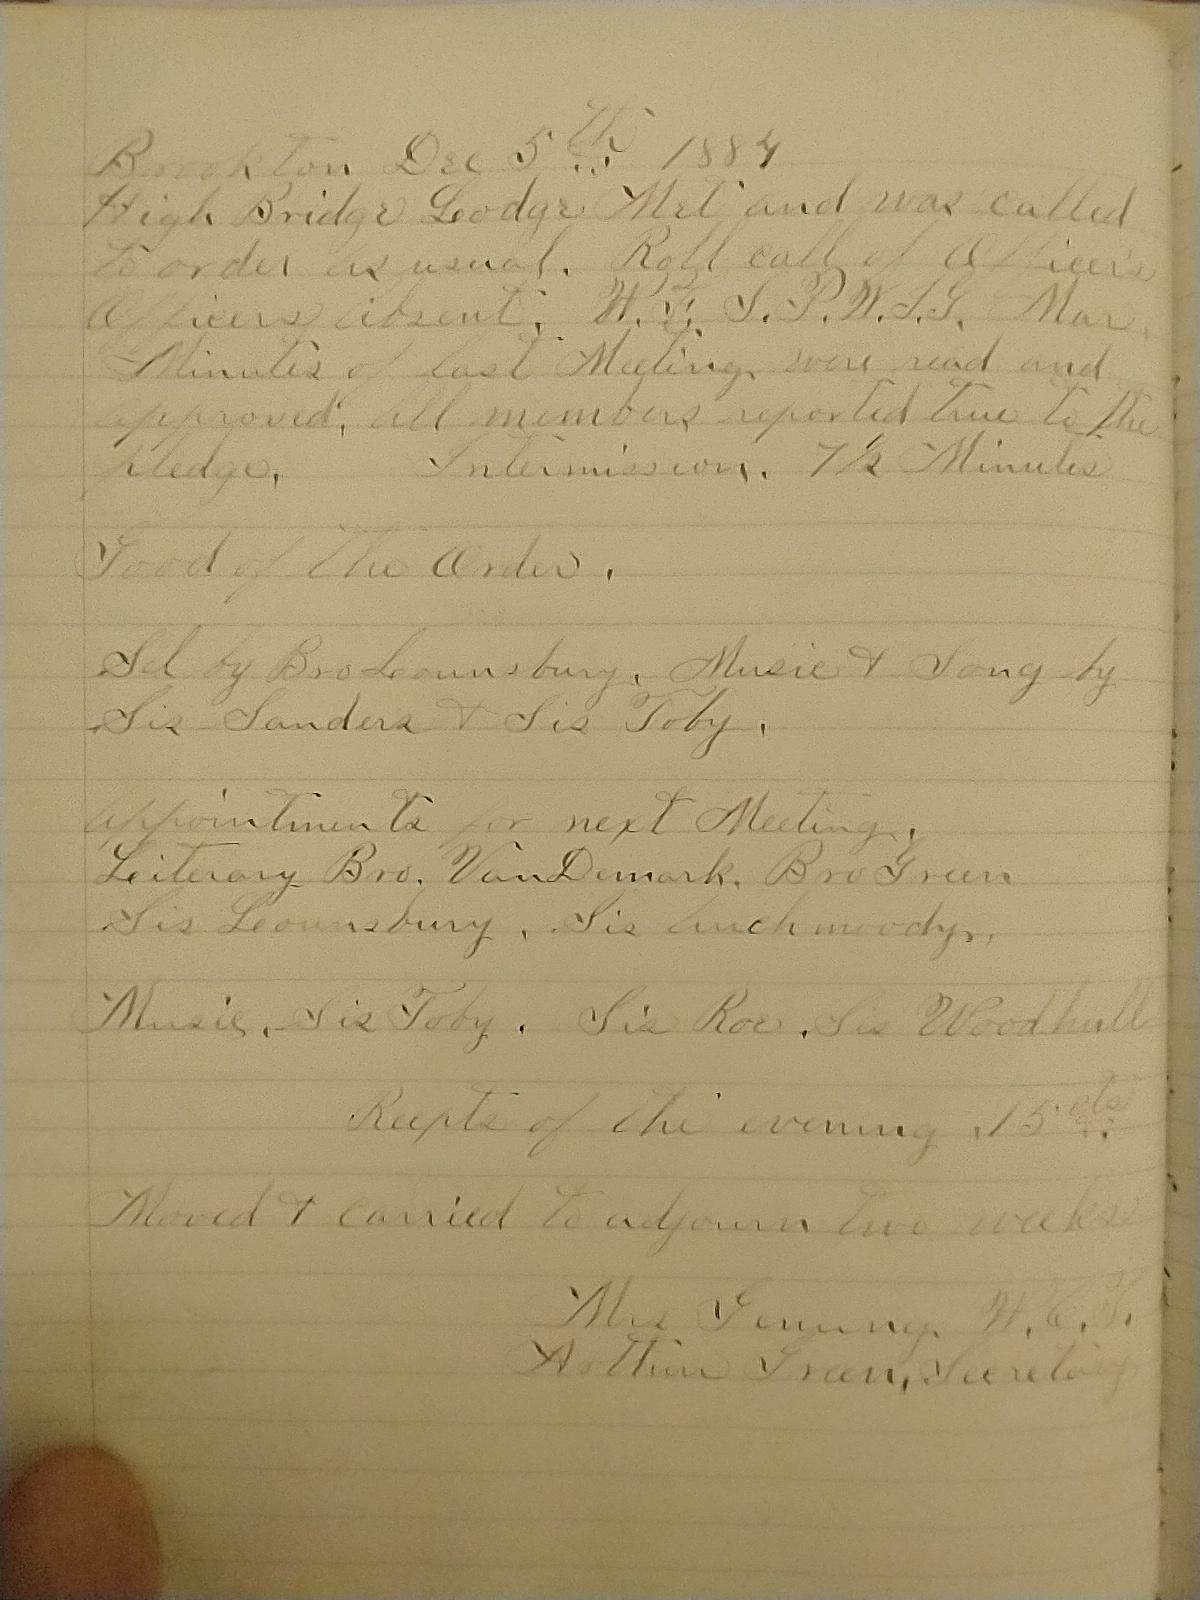 Brookton Dec 5th 1884
High Bridge Leodge Met and was called
to order as usual. Roll call of Officers
Officers absent. W. F. S. P.W.S.G. Mar.
Minutes of last Meeting were read and
approved, all members reported true to the
pledge, Intermission. 7½ Minutes
Good of the Order.
Sel by Bro Leounsbury. Music & Song by
Sis Sanders & Sis Toby.
appointments for next Meeting.
Leiterary Bro. VanDemark. Bro Green
Sis Leounsbury. Sis
Music. Sis Toby. Sis Roe. Sis Woodhull
Recepts of the evening .15 cts
Moved & carried to adjourn two weeks
Mrs W.C.T.
Arthur Green, Secretary